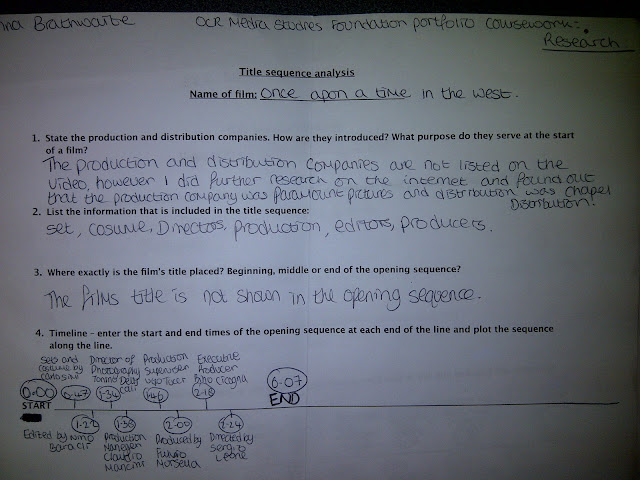 nna Brathwaite OCR Media Studies Foundation portfolio coursework:
Research
Title sequence analysis
Name of film: Once apon a time in the west.
1. State the production and distribution companies. How are they introduced? What purpose do they serve at the start
of a film?
The production and distribution companies are not listed on the
video, however I did further research on the internet and found out
that the production company was paramount pictures and distribution was chapel
Distribution!
2. List the information that is included in the title sequence:
set, cosume, Directors, production, editors, producers.
3. Where exactly is the film's title placed? Beginning, middle or end of the opening sequence?
The films title is not shown in the opening sequence.
4. Timeline – enter the start and end times of the opening sequence at each end of the line and plot the sequence
along the line.
Sets and Director of Production Executive
costume by Photography Supervisor Producer
Carlo Simi Tonino Delli Ugo Tucci Bino Cicogna
Colli
0.00 0.47 1.34 1.46 2.18 6.07
START END
1.22 1.38 2.00 2.24
Edited by Nino Production Produced by Directed by
Claudio Fulvio Sergio
Mancini Morsella Leone